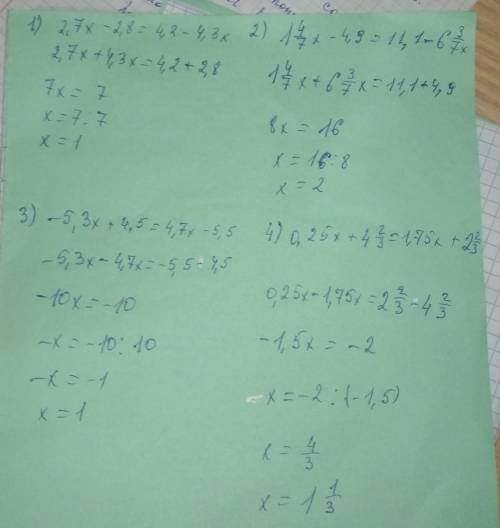 1) 2,7x - 2,8 = 4,2 - 4,3x
2,7x + 4,3x = 4,2 + 2,8
7x = 7
x = 7:7
x = 1
2) 1 4/7 x - 4,9 = 11,1 - 6 3/7 x
1 4/7 x + 6 3/7 x = 11,1 + 4,9
8x = 16
x = 16:8
x = 2
3) -5,3x + 4,5 = 4,7x - 5,5
-5,3x - 4,7x = -5,5 - 4,5
-10x = -10
-x = -10:10
-x = -1
x = 1
4) 0,25x + 4 2/3 = 1,75x + 2 2/3
0,25x - 1,75x = 2 2/3 - 4 2/3
-1,5x = -2
x = -2:(-1,5)
x = 4/3
x = 1 1/3